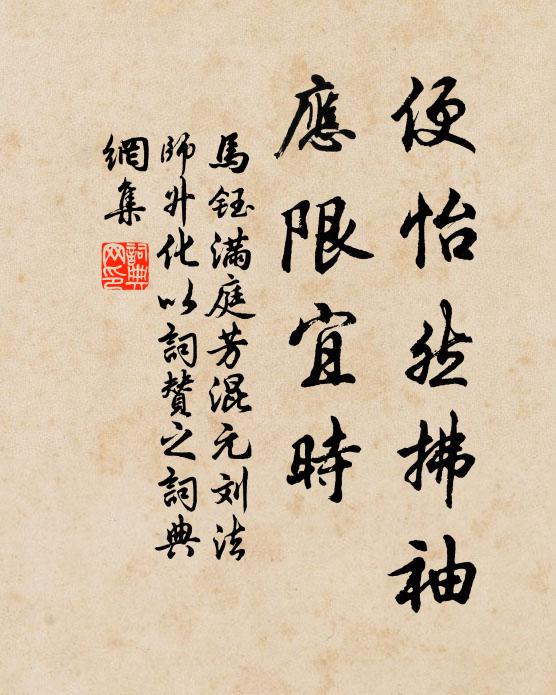 便怡然拂袖
應限宜時
馬鈺滿庭芳混元刘法
師升化以詞贊之詞典
網集
詞典
网印